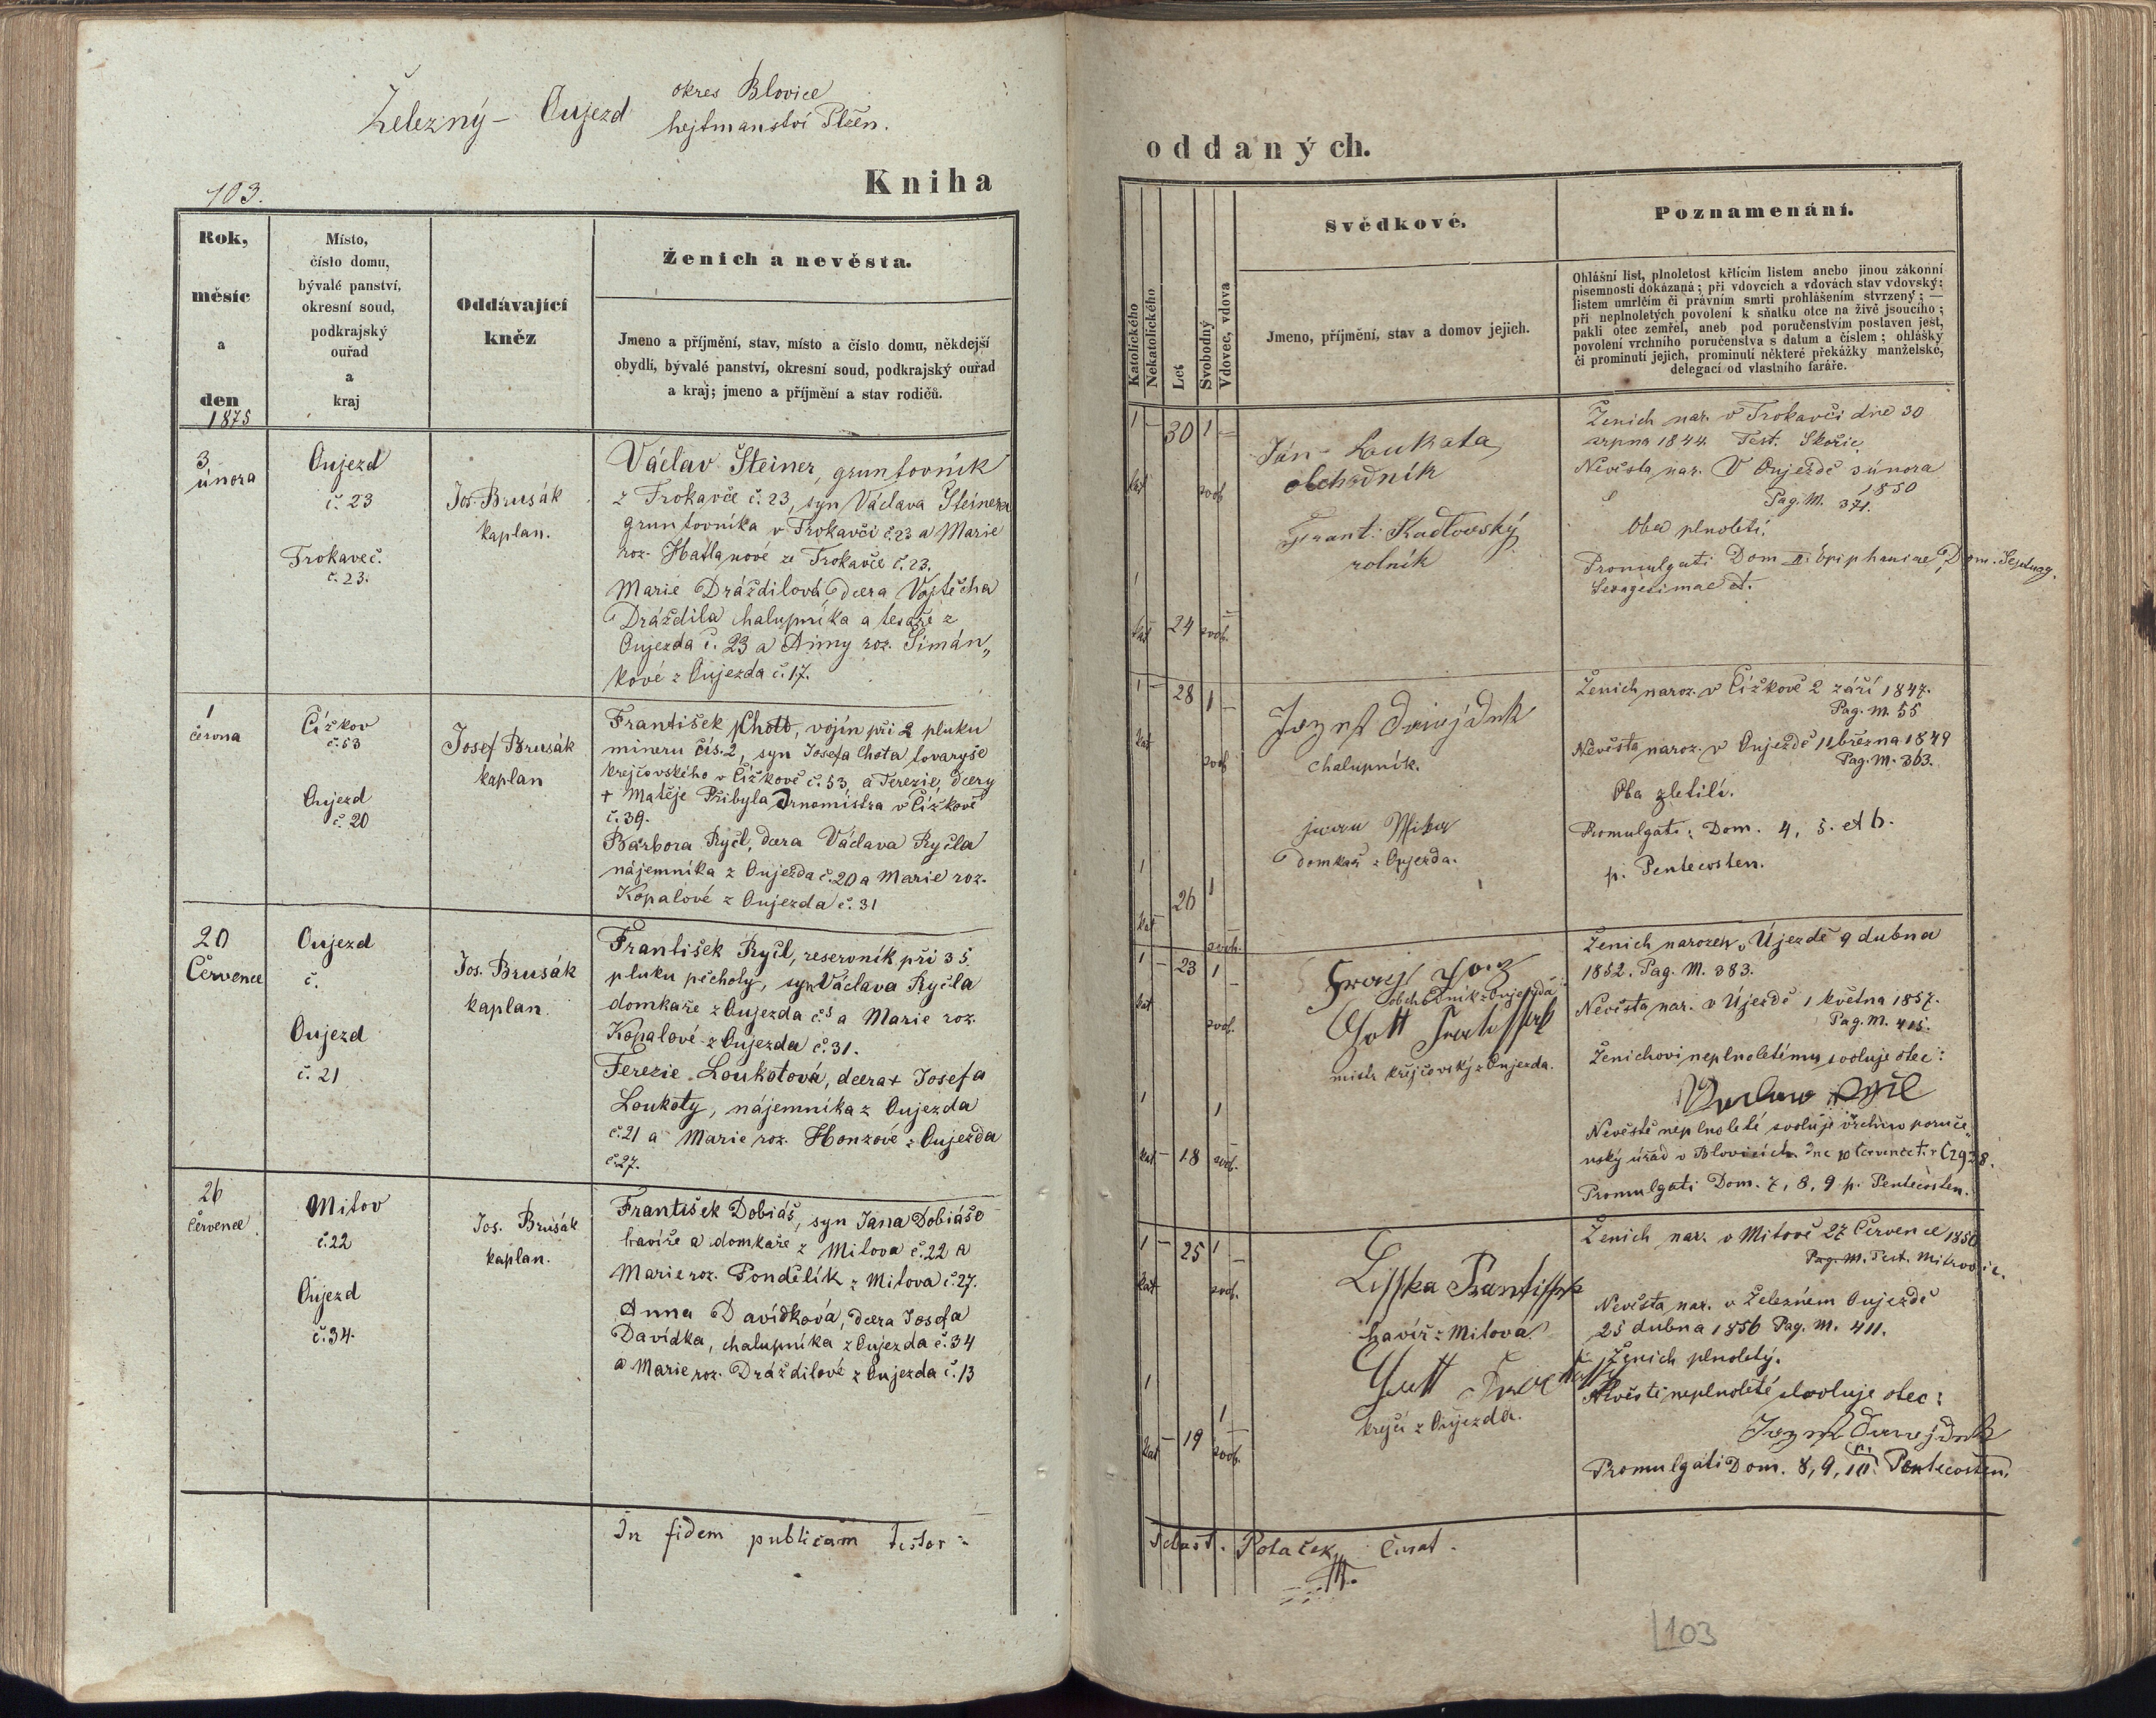 Železný- Oujezd
okres Blovice
hejtmanství Plzeň.
103.
Kniha
Rok,
měsíc
a
den
1875
Místo,
číslo domu,
bývalé panství,
okresní soud,
podkrajský
ouřad
a
kraj
Oddávající
kněz
Ženich a nevěsta.
Jmeno a příjmění, stav, místo a číslo domu, někdejší
obydlí, bývalé panství, okresní soud, podkrajský ouřad
a kraj; jmeno a příjmění a stav rodičů.
3
února
Oujezd
č. 23
Trokaveč.
č. 23.
Jos. Brusák
kaplan.
Václav Šteiner, gruntovník
z Trokavče č. 23, syn Václava Šteinera
gruntovníka v Trokavči č. 23 a Marie
roz. Hatlanové ze Trokavče č. 23.
Marie Dráždilová, dcera Vojtěcha
Dráždila chalupníka a tesaře z
Oujezda č. 23 a Anny roz. Šimán„
kové z Oujezda č. 17.
1
června
Čížkov
č. 53
Oujezd
č. 20
Josef Brusák
kaplan
František Chott, vojín při 2 pluku
mineru čís. 2, syn Josefa Chota tovaryše
krejčovského v Čížkově č. 53, a Terezie, dcery
+ Matěje Přibyla drnomistra v Čížkově
č. 39.
Barbora Ryčl, dcera Václava Ryčla
nájemníka z Oujezda č. 20 a Marie roz.
Kopalové z Oujezda č. 31
20
Července
Oujezd
č.
Oujezd
č. 21
Jos. Brusák
kaplan.
František Ryčl, reservník při 35
pluku pěchoty, syn Václava Ryčla
domkaře z Oujezda č. 5 a Marie roz.
Kopalové z Oujezda č. 31.
Terezie Loukotová, dcera + Josefa
Loukoty, nájemníka z Oujezda
č. 21 a Marie roz. Honzové z Oujezda
č. 27.
26
Července
Mitov
č. 22
Oujezd
č. 34.
Jos. Brusák
kaplan.
František Dobiáš, syn Jana Dobiáše
havíře a domkaře z Mitova č. 22 a
Marie roz. Pondělík z Mitova č. 27.
Anna Davídková, dcera Josefa
Davídka, chalupníka z Oujezda č. 34
a Marie roz. Dráždilové z Oujezda č. 13
In fidem publicam testor:
oddaných.
Katolického
Nekatolického
Let
Svobodný
Vdovec, vdova
Svědkové.
Jmeno, příjmění, stav a domov jejich.
Poznamenání.
Ohlášní list, plnoletost křtícím listem anebo jinou zákonní
písemností dokázaná; při vdovcích a vdovách stav vdovský:
listem umrlčím či právním smrti prohlášením stvrzený; —
při neplnoletých povolení k sňatku otce na živě jsoucího;
pakli otec zemřel, aneb pod poručenstvím postaven jest,
povolení vrchního poručenstva s datum a číslem; ohlášky
či prominutí jejich, prominutí některé překážky manželské,
delegací od vlastního faráře.
1 — 30 1 —
kat svob
Ján Loukota
obchodník
Frant. Kadlovský
rolník
1
kat 24 svob.
Ženich nar. v Trokavči dne 30
srpna 1844 Test. Skořic.
Nevěsta nar. v Oujezdě 3 února
1850
Pag. M. 371.
Oba plnoletí.
Promulgati Dom II. Epiphaniae, Dom. Septuag.
Sexagesimae et.
1 — 28 1 —
kat svob
chalupník.
domkař z Oujezda.
1
26 1
kat svob.
Ženich naroz. v Čížkově 2 září 1847.
Pag. M. 55
Nevěsta naroz. v Oujezdě 11 března 1849
Pag. M. 363.
Oba zletilí.
Promulgati: Dom. 4, 5. et 6.
p. Pentecosten.
1 — 23 1 —
kat svob.
obchodník z Oujezda
mistr krejčovský z Oujezda.
1 1
kat — 18 svob.
Ženich narozen v Újezdě 9 dubna
1852. Pag. M. 383.
Nevěsta nar. v Újezdě 1 května 1857.
Pag. M. 415.
Ženichovi neplnoletému svoluje otec:
Nevěstě neplnoleté svoluje vrchno poruče„
nský úřad v Blovicích dne 10 července t. r. Č 2928.
Promulgati Dom. 7, 8, 9 p. Pentecosten.
1 — 25 1 —
kat svob.
Lisska Frantissek
havíř z Mitova
krejčí z Oujezda.
1 1
kat — 19 svob.
Ženich nar. v Mitově 27 Července 1850
Pag. M. Test. Mitrovic.
Nevěsta nar. v Železném Oujezdě
25 dubna 1856 Pag. M. 411.
Ženich plnoletý.
Nevěstě neplnoleté svoluje otec:
Promulgati Dom. 8, 9, 10. p. Pentecosten.
Sebast. Polaček, Curat.
103